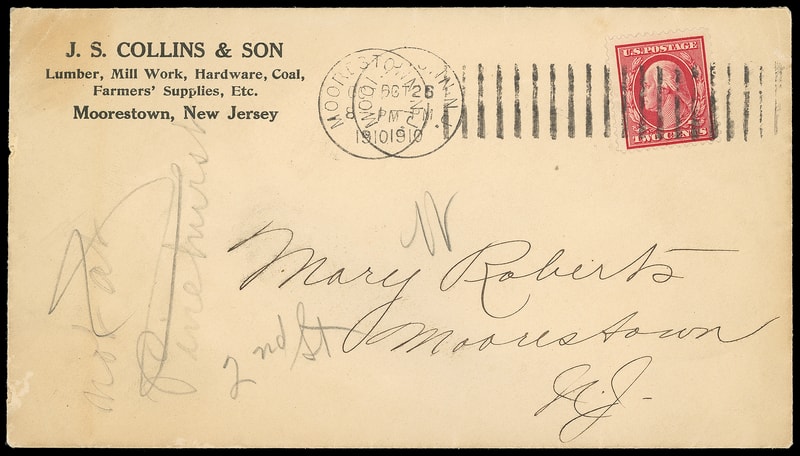 J. S. COLLINS & SON
Lumber, Mill Work, Hardware, Coal,
Farmers' Supplies, Etc.
Moorestown, New Jersey
MOORESTOWN N.J.
OCT 26
8 PM
1910 1910
U.S. POSTAGE
TWO CENTS
N
Mary Roberts
2nd St
Moorestown
N.J.
not at
Pinehurst